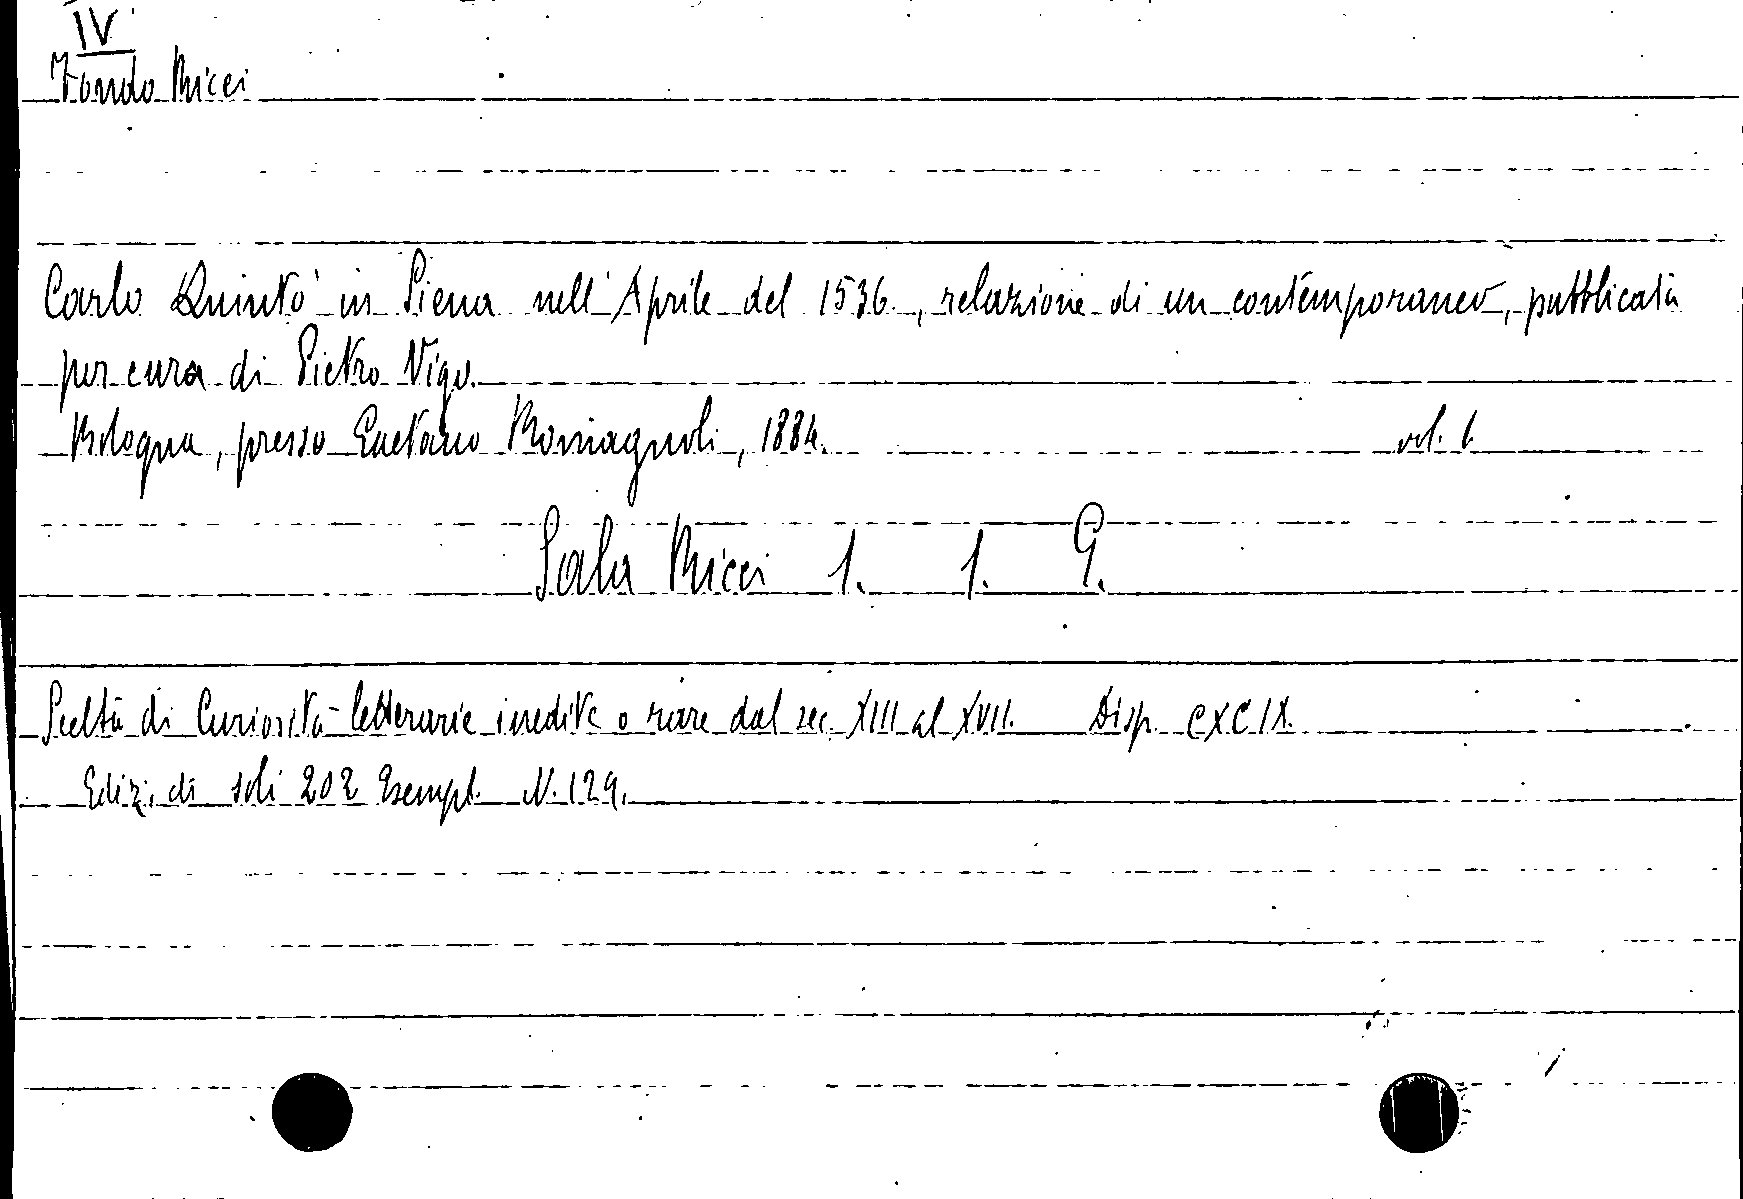 IV
Fondo Ricci
Carlo Quinto in Siena nell'Aprile del 1536., relazione di un contemporaneo, pubblicata
per cura di Pietro Vigo.
Bologna, presso Gaetano Romagnoli, 1884. vol. 1.
Sala Ricci 1. 1. G.
Scelta di Curiosità letterarie inedite o rare dal sec. XIII al XVII. Disp. CXCIX.
Ediz. di soli 202 Esempl. N. 129.